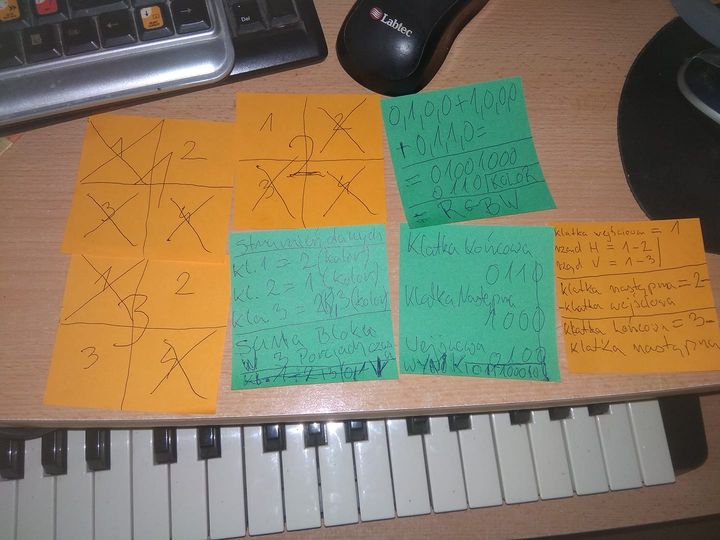 Del
Labtec
1 2
3 4
1
1 2
3 4
2
0,1,0,0+1,0,0,0
+0,1,1,0=
= 01001000
0110 (kolor
= RGBW
1 2
3 4
3
Strumień danych
kl.1 = 2 (kolor)
kl. 2 = 1 (kolor)
kla 3 = 2,3 (kolor)
Suma Bloku
w 3
Klatka końcowa
0110
Klatka Następna
1000
Wejściowa
0100
klatka wejściowa = 1
rząd H = 1-2
rząd V = 1-3
klatka następna = 2-
-klatka wejściowa
klatka końcowa = 3-
klatka następna